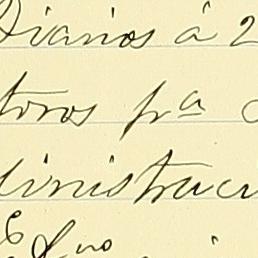 Diarios á 2
toros pra
ministrac
Exmo